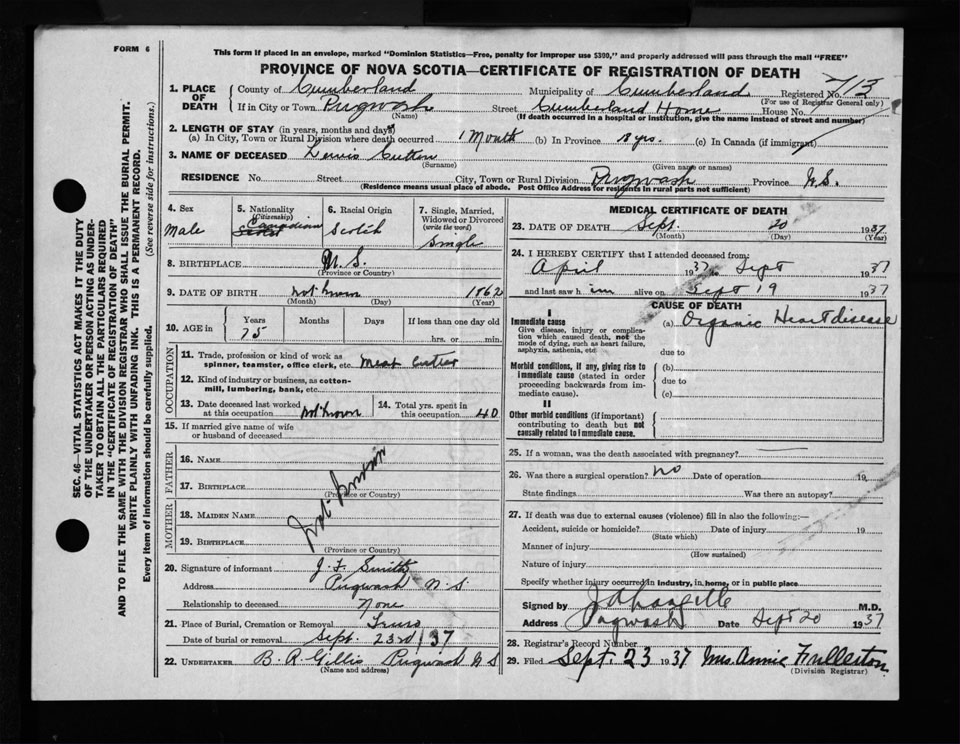 FORM 6
This form if placed in an envelope, marked "Dominion Statistics—Free, penalty for improper use $300," and properly addressed will pass through the mail "FREE"
PROVINCE OF NOVA SCOTIA—CERTIFICATE OF REGISTRATION OF DEATH
SEC. 46—VITAL STATISTICS ACT MAKES IT THE DUTY
OF THE UNDERTAKER OR PERSON ACTING AS UNDER-
TAKER TO OBTAIN ALL THE PARTICULARS REQUIRED
IN THE "CERTIFICATE OF REGISTRATION OF DEATH"
AND TO FILE THE SAME WITH THE DIVISION REGISTRAR WHO SHALL ISSUE THE BURIAL PERMIT.
WRITE PLAINLY WITH UNFADING INK. THIS IS A PERMANENT RECORD.
Every item of information should be carefully supplied. (See reverse side for instructions.)
1. PLACE OF DEATH County of Cumberland Municipality of Cumberland Registered No. 713
(For use of Registrar General only)
If in City or Town Pugwash Street Cumberland Home House No.
(Name) (If death occurred in a hospital or institution, give the name instead of street and number)
2. LENGTH OF STAY (in years, months and days)
(a) In City, Town or Rural Division where death occurred 1 Month (b) In Province 18 yrs. (c) In Canada (if immigrant)
3. NAME OF DECEASED
(Surname) (Given name or names)
RESIDENCE No. Street City, Town or Rural Division Pugwash Province N.S.
(Residence means usual place of abode. Post Office Address for residents in rural parts not sufficient)
4. Sex Male
5. Nationality (Citizenship) Canadian
6. Racial Origin Scotch
7. Single, Married, Widowed or Divorced (write the word) Single
8. BIRTHPLACE N.S.
(Province or Country)
9. DATE OF BIRTH not known 1862
(Month) (Day) (Year)
10. AGE in Years 75 Months Days If less than one day old hrs. or min.
OCCUPATION
11. Trade, profession or kind of work as spinner, teamster, office clerk, etc. Meat Cutter
12. Kind of industry or business, as cotton-mill, lumbering, bank, etc.
13. Date deceased last worked at this occupation not known
14. Total yrs. spent in this occupation 40
15. If married give name of wife or husband of deceased
FATHER
16. NAME
17. BIRTHPLACE
(Province or Country)
Not known
MOTHER
18. MAIDEN NAME
19. BIRTHPLACE
(Province or Country)
20. Signature of informant J. F. Smith
Address Pugwash N S
Relationship to deceased None
21. Place of Burial, Cremation or Removal Truro
Date of burial or removal Sept. 23rd / 37
22. UNDERTAKER B. R. Gillis Pugwash N S
(Name and address)
MEDICAL CERTIFICATE OF DEATH
23. DATE OF DEATH Sept. 20 1937
(Month) (Day) (Year)
24. I HEREBY CERTIFY that I attended deceased from:
April 1937 to Sept 1937
and last saw him alive on Sept 19 1937
CAUSE OF DEATH
I
Immediate cause
Give disease, injury or complication which caused death, not the mode of dying, such as heart failure, asphyxia, asthenia, etc.
(a) Organic Heart disease
due to
Morbid conditions, if any, giving rise to immediate cause (stated in order proceeding backwards from immediate cause).
(b)
due to
(c)
II
Other morbid conditions (if important) contributing to death but not causally related to immediate cause.
25. If a woman, was the death associated with pregnancy?
26. Was there a surgical operation? no Date of operation 19
State findings Was there an autopsy?
27. If death was due to external causes (violence) fill in also the following:—
Accident, suicide or homicide? Date of injury 19
(State which)
Manner of injury
(How sustained)
Nature of injury
Specify whether injury occurred in industry, in home, or in public place
Signed by M.D.
Address Pugwash Date Sept 20 1937
28. Registrar's Record Number
29. Filed Sept. 23 1937 Mrs. Annie Fullerton
(Division Registrar)